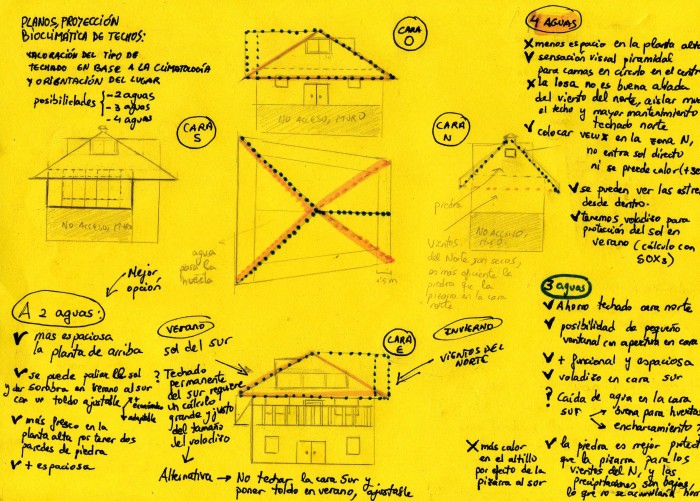 PLANOS, PROYECCIÓN
BIOCLIMÁTICA DE TECHOS:
VALORACIÓN DEL TIPO DE
TECHADO EN BASE A LA CLIMATOLOGÍA
Y ORIENTACIÓN DEL LUGAR
posibilidades
- 2 aguas
- 3 aguas
- 4 aguas
CARA
O
NO ACCESO, MURO
CARA
S
NO ACCESO, MURO
agua
para la
huerta
1'5m
CARA
N
piedra
NO ACCESO,
MURO
Vientos
del Norte son secos,
es más eficiente la
piedra que la
pizarra en la cara
norte
4 AGUAS
X menos espacio en la planta alta
✓ sensación visual piramidal
para camas en círculo en el centro
X la losa no es buena aliada
del viento del norte, aislar
el techo y mayor mantenimiento
techado norte
✓ colocar VELUX en la zona N,
no entra sol directo
ni se pierde calor
✓ se pueden ver las
desde dentro.
✓ tenemos voladizo para
protección del sol en
verano (cálculo con
Mejor
opción
A 2 aguas:
✓ mas espaciosa
la planta de arriba
✓ se puede paliar el sol
y dar sombra en verano al sur
con un toldo ajustable
+ económico
+ adaptable
✓ más fresco en la
planta alta por tener dos
paredes de piedra
✓ + espaciosa
VERANO
sol del sur
? Techado
permanente
del sur requiere
un cálculo
grande y justo
del tamaño
del voladizo
Alternativa → No techar la cara Sur y
poner toldo en verano, ajustable
CARA
E
INVIERNO
VIENTOS DEL
NORTE
X más calor
en el altillo
por efecto de la
pizarra al sur
3 aguas
✓ Ahorro techado cara norte
✓ posibilidad de pequeño
ventanal con apertura en cara
✓ + funcional y espaciosa
✓ voladizo en cara sur
? Caída de agua en la cara
sur
buena para huertas
encharcamiento?
✓ la piedra es mejor
que la pizarra para los
vientos del N, y las
precipitaciones son bajas,
lo que no es